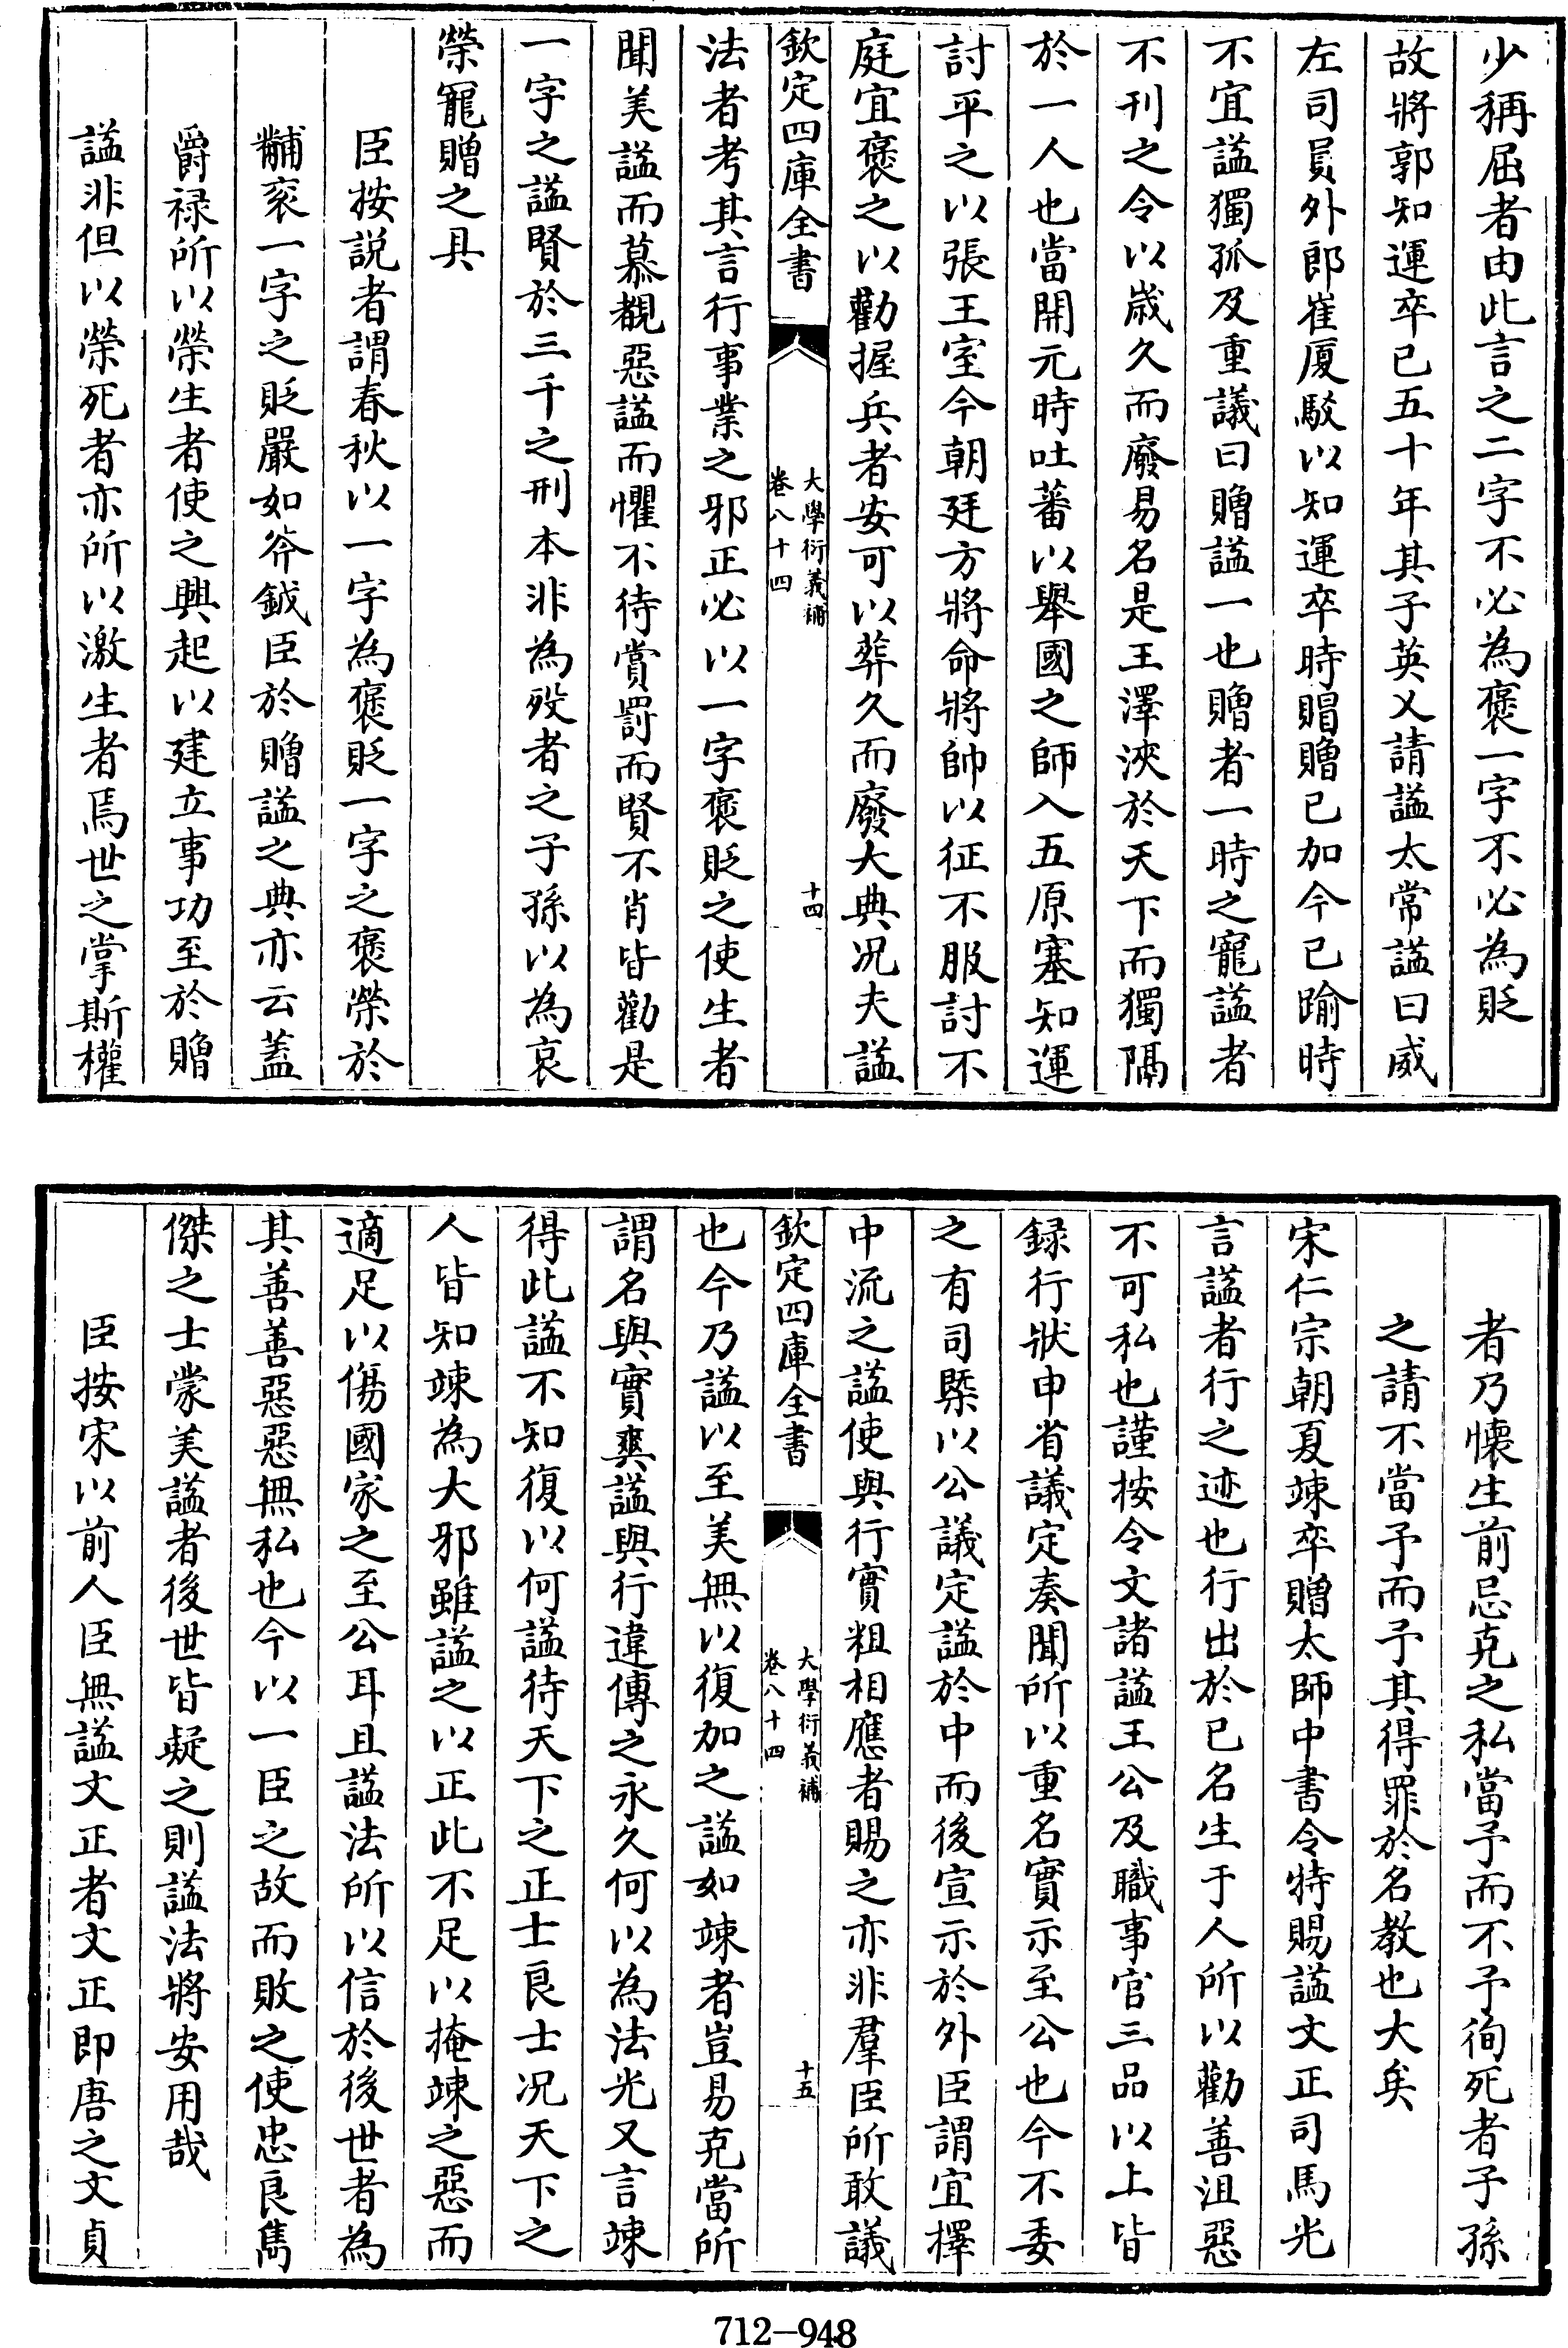 少稱屈者由此言之二字不必為褒一字不必為貶
故將郭知運卒已五十年其子英乂請謚太常謚曰威
左司員外郎崔厦駮以知運卒時賵贈已加今已踰時
不宜謚獨孤及重議曰贈謚一也贈者一時之寵謚者
不刊之令以歲久而廢易名是王澤浹於天下而獨隔
於一人也當開元時吐蕃以舉國之師入五原塞知運
討平之以張王室今朝廷方將命將帥以征不服討不
庭宜褒之以勸握兵者安可以葬久而廢大典况夫謚
欽定四庫全書
大學衍義補
卷八十四
十四
法者考其言行事業之邪正必以一字褒貶之使生者
聞美謚而慕覩惡謚而懼不待賞罰而賢不肖皆勸是
一字之謚賢於三千之刑本非為歿者之子孫以為哀
榮寵贈之具
臣按説者謂春秋以一字為褒貶一字之褒榮於
黼衮一字之貶嚴如斧鉞臣於贈謚之典亦云蓋
爵禄所以榮生者使之興起以建立事功至於贈
謚非但以榮死者亦所以激生者焉世之掌斯權
者乃懷生前忌克之私當予而不予徇死者子孫
之請不當予而予其得罪於名教也大矣
宋仁宗朝夏竦卒贈太師中書令特賜謚文正司馬光
言謚者行之迹也行出於已名生于人所以勸善沮惡
不可私也謹按令文諸謚王公及職事官三品以上皆
録行狀申省議定奏聞所以重名實示至公也今不委
之有司槩以公議定謚於中而後宣示於外臣謂宜擇
中流之謚使與行實粗相應者賜之亦非羣臣所敢議
欽定四庫全書
大學衍義補
卷八十四
十五
也今乃謚以至美無以復加之謚如竦者豈易克當所
謂名與實爽謚與行違傳之永久何以為法光又言竦
得此謚不知復以何謚待天下之正士良士况天下之
人皆知竦為大邪雖謚之以正此不足以掩竦之惡而
適足以傷國家之至公耳且謚法所以信於後世者為
其善善惡惡無私也今以一臣之故而敗之使忠良雋
傑之士蒙美謚者後世皆疑之則謚法將安用哉
臣按宋以前人臣無謚文正者文正即唐之文貞
712-948